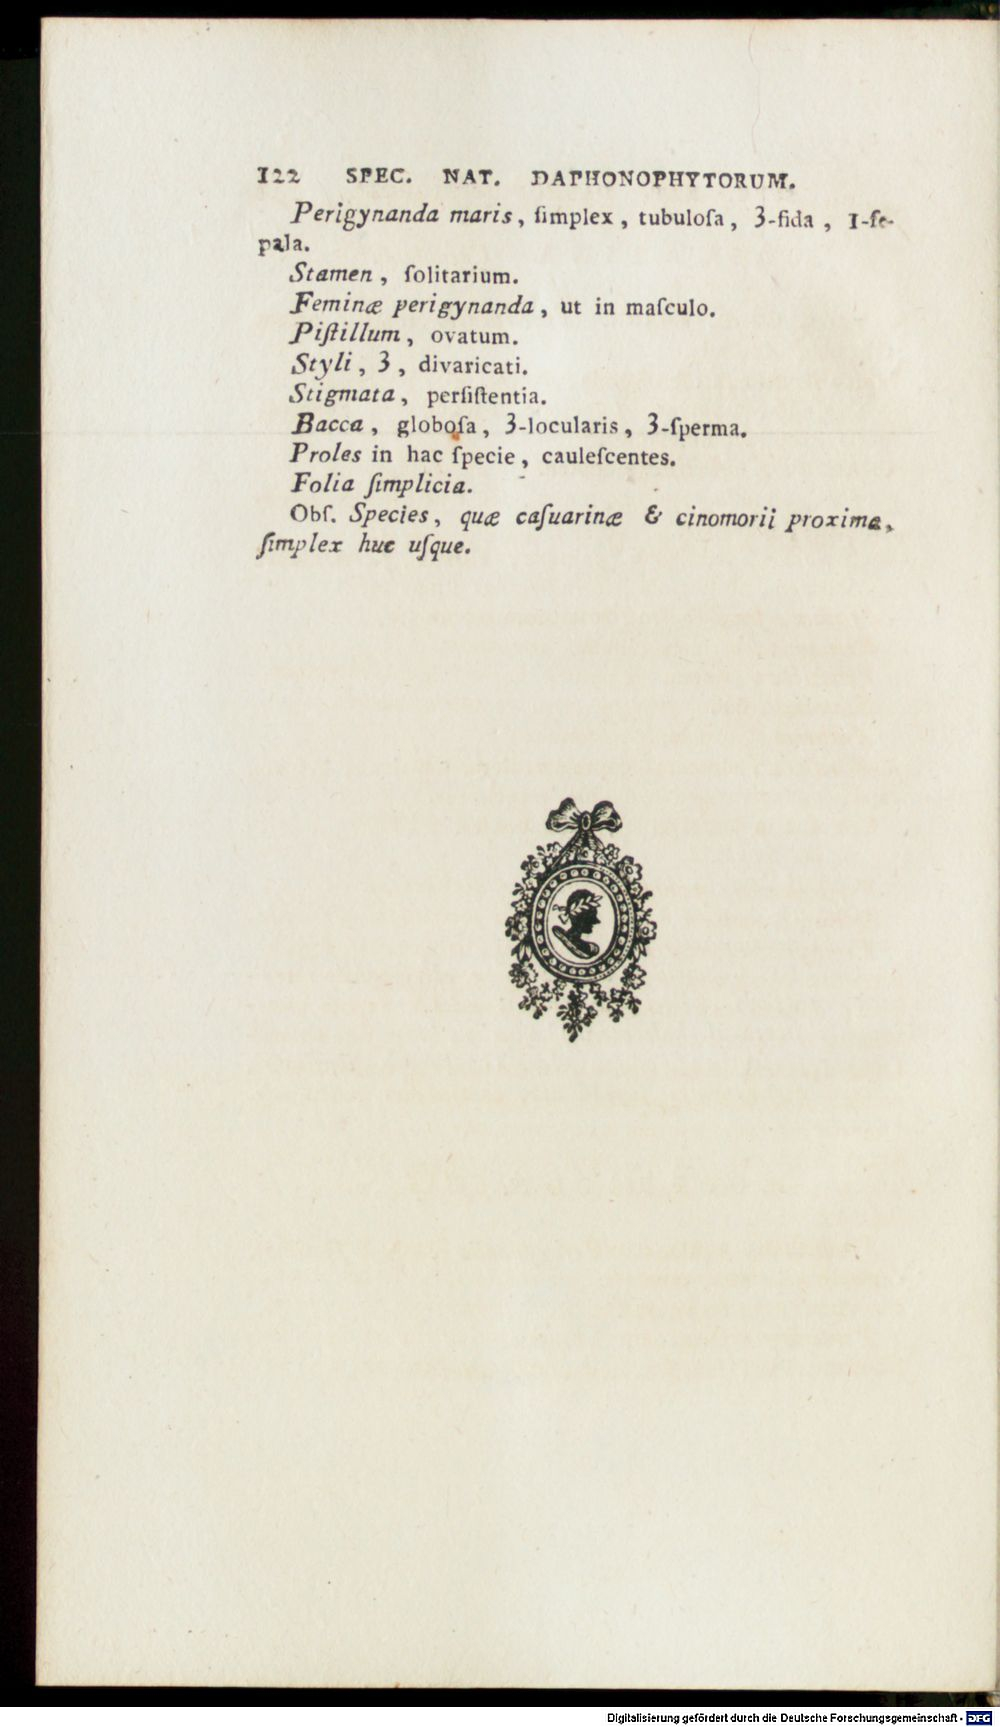 122 SPEC. NAT. DAPHONOPHYTORUM.
Perigynanda maris, ſimplex, tubuloſa, 3-fida, 1-ſe-
pala.
Stamen, ſolitarium.
Feminæ perigynanda, ut in maſculo.
Piſtillum, ovatum.
Styli, 3, divaricati.
Stigmata, perſiſtentia.
Bacca, globoſa, 3-locularis, 3-ſperma.
Proles in hac ſpecie, cauleſcentes.
Folia ſimplicia.
Obſ. Species, quæ caſuarinæ & cinomorii proxima,
ſimplex huc uſque.
Digitalisierung gefördert durch die Deutsche Forschungsgemeinschaft - DFG